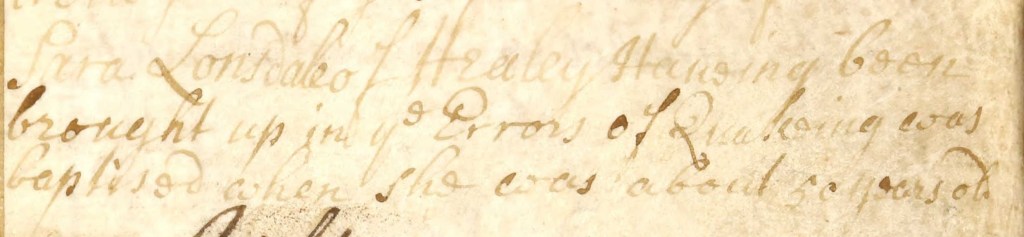 Sara Lonsdale of Healey Haveing been
brought up in yᵉ Errors of Quakeing was
baptised when she was about 50 years old